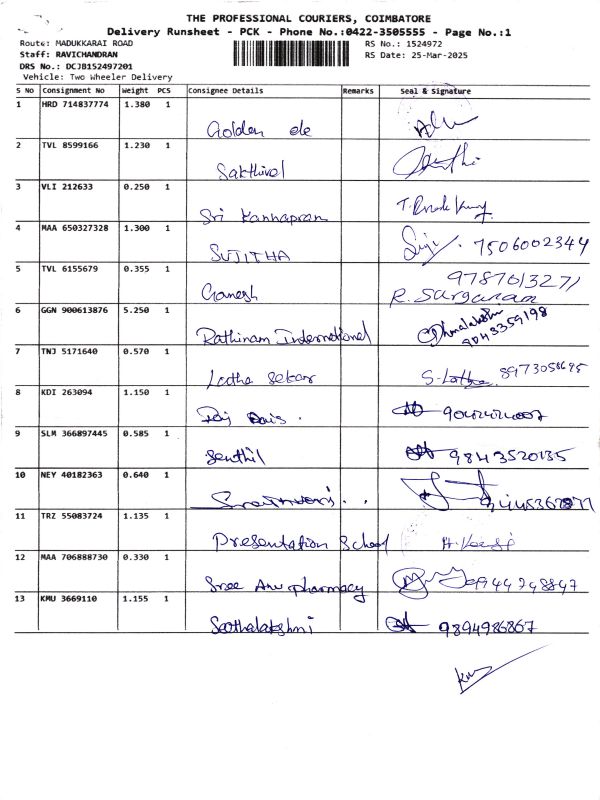 THE PROFESSIONAL COURIERS, COIMBATORE
Delivery Runsheet - PCK - Phone No.:0422-3505555 - Page No.:1
Route: MADUKKARAI ROAD RS No.: 1524972
Staff: RAVICHANDRAN RS Date: 25-Mar-2025
DRS No.: DCJB152497201
Vehicle: Two Wheeler Delivery
S No Consignment No Weight PCS Consignee Details Remarks Seal & Signature
1 HRD 714837774 1.380 1
Golden de
2 TVL 8599166 1.230 1
Sakthivel
3 VLI 212633 0.250 1
Sri Kannapran
4 MAA 650327328 1.300 1
SUJITHA 7506002344
5 TVL 6155679 0.355 1 9787013271
Ganesh R.
6 GGN 900613876 5.250 1
Rathinam International 9043359198
7 TNJ 5171640 0.570 1
Latha Sekar S. Latha
8 KDI 263094 1.150 1
9 SLM 366897445 0.585 1
Senthil 9843520135
10 NEY 40182363 0.640 1
11 TRZ 55083724 1.135 1
Presentation School
12 MAA 706888730 0.330 1
Sree Anu pharmacy
13 KMU 3669110 1.155 1
9894986867